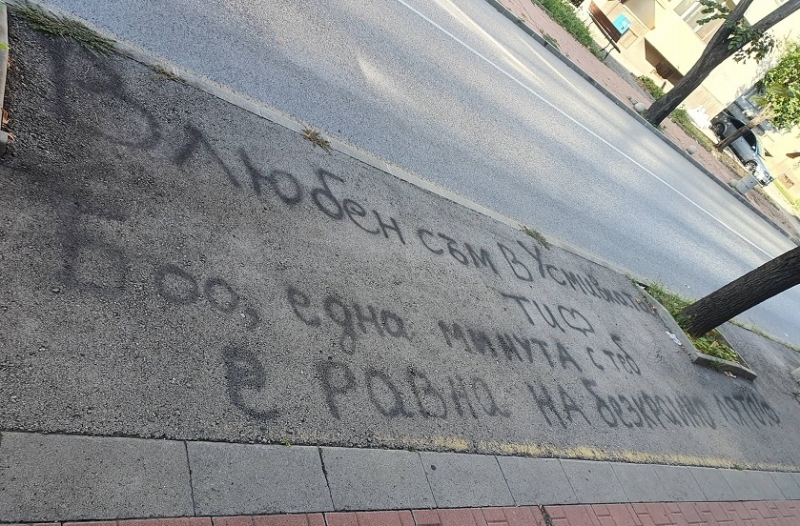 Влюбен съм в Усмивката
ти♡
Боо, една минута с теб
е равна на безкрайно лято